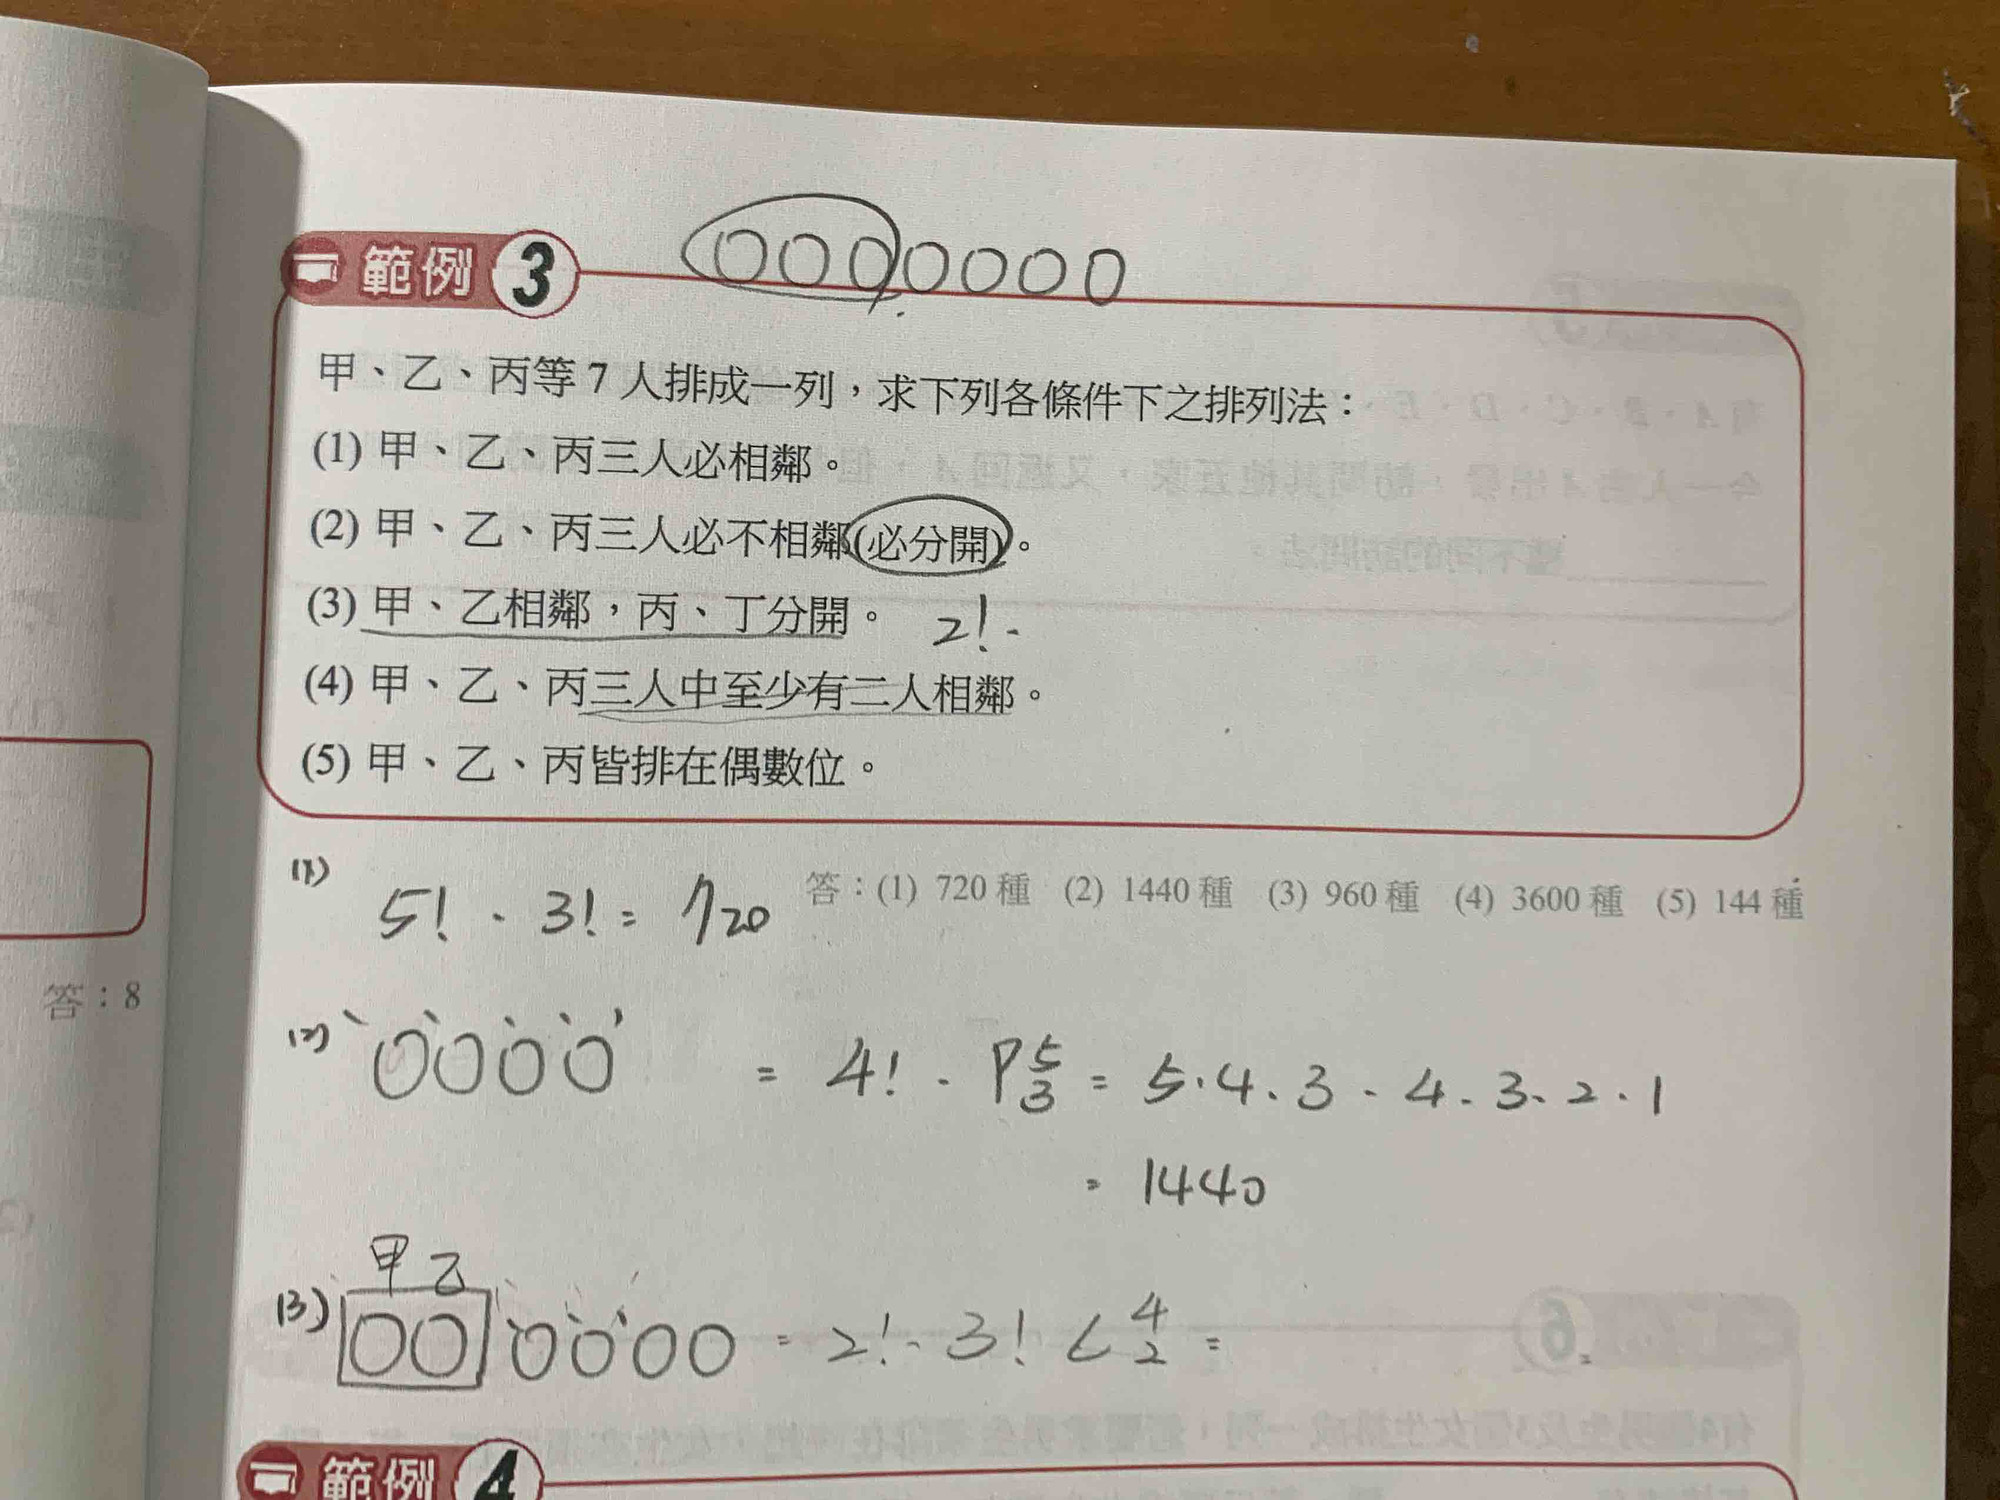 範例 3
甲、乙、丙等 7 人排成一列，求下列各條件下之排列法：
(1) 甲、乙、丙三人必相鄰。
(2) 甲、乙、丙三人必不相鄰(必分開)。
(3) 甲、乙相鄰，丙、丁分開。 2! ·
(4) 甲、乙、丙三人中至少有二人相鄰。
(5) 甲、乙、丙皆排在偶數位。
答：(1) 720 種 (2) 1440 種 (3) 960 種 (4) 3600 種 (5) 144 種
(1) 5! · 3! = 720
答：8
(2) = 4! · P 5 3 = 5 · 4 · 3 · 4 · 3 · 2 · 1
= 1440
甲 乙
(3) = 2! · 3! C 4 2 =
範例 4